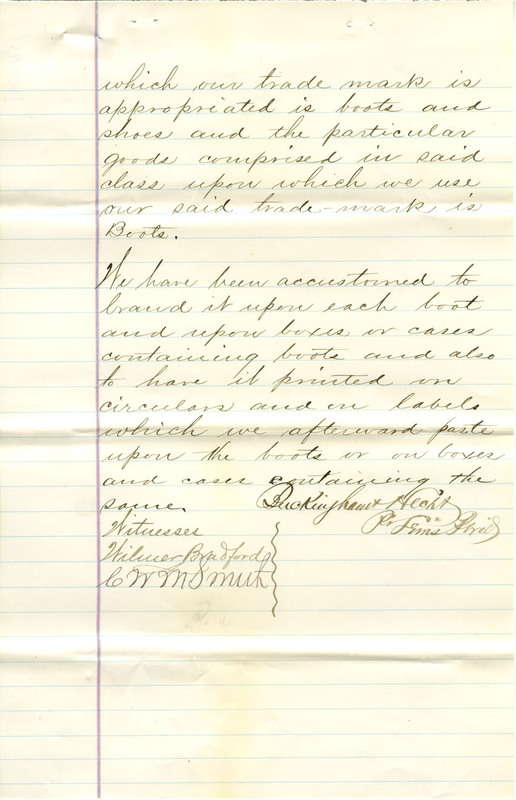 which our trade mark is
appropriated is boots and
shoes and the particular
goods comprised in said
class upon which we use
our said trade-mark is
Boots.
We have been accustomed to
brand it upon each boot
and upon boxes or cases
containing boots and also
to have it printed on
circulars and on labels
which we afterward paste
upon the boots or on boxes
and cases containing the
same. Buckingham & Hecht
Witnesses
Wilmer Bradford
C W M Smith